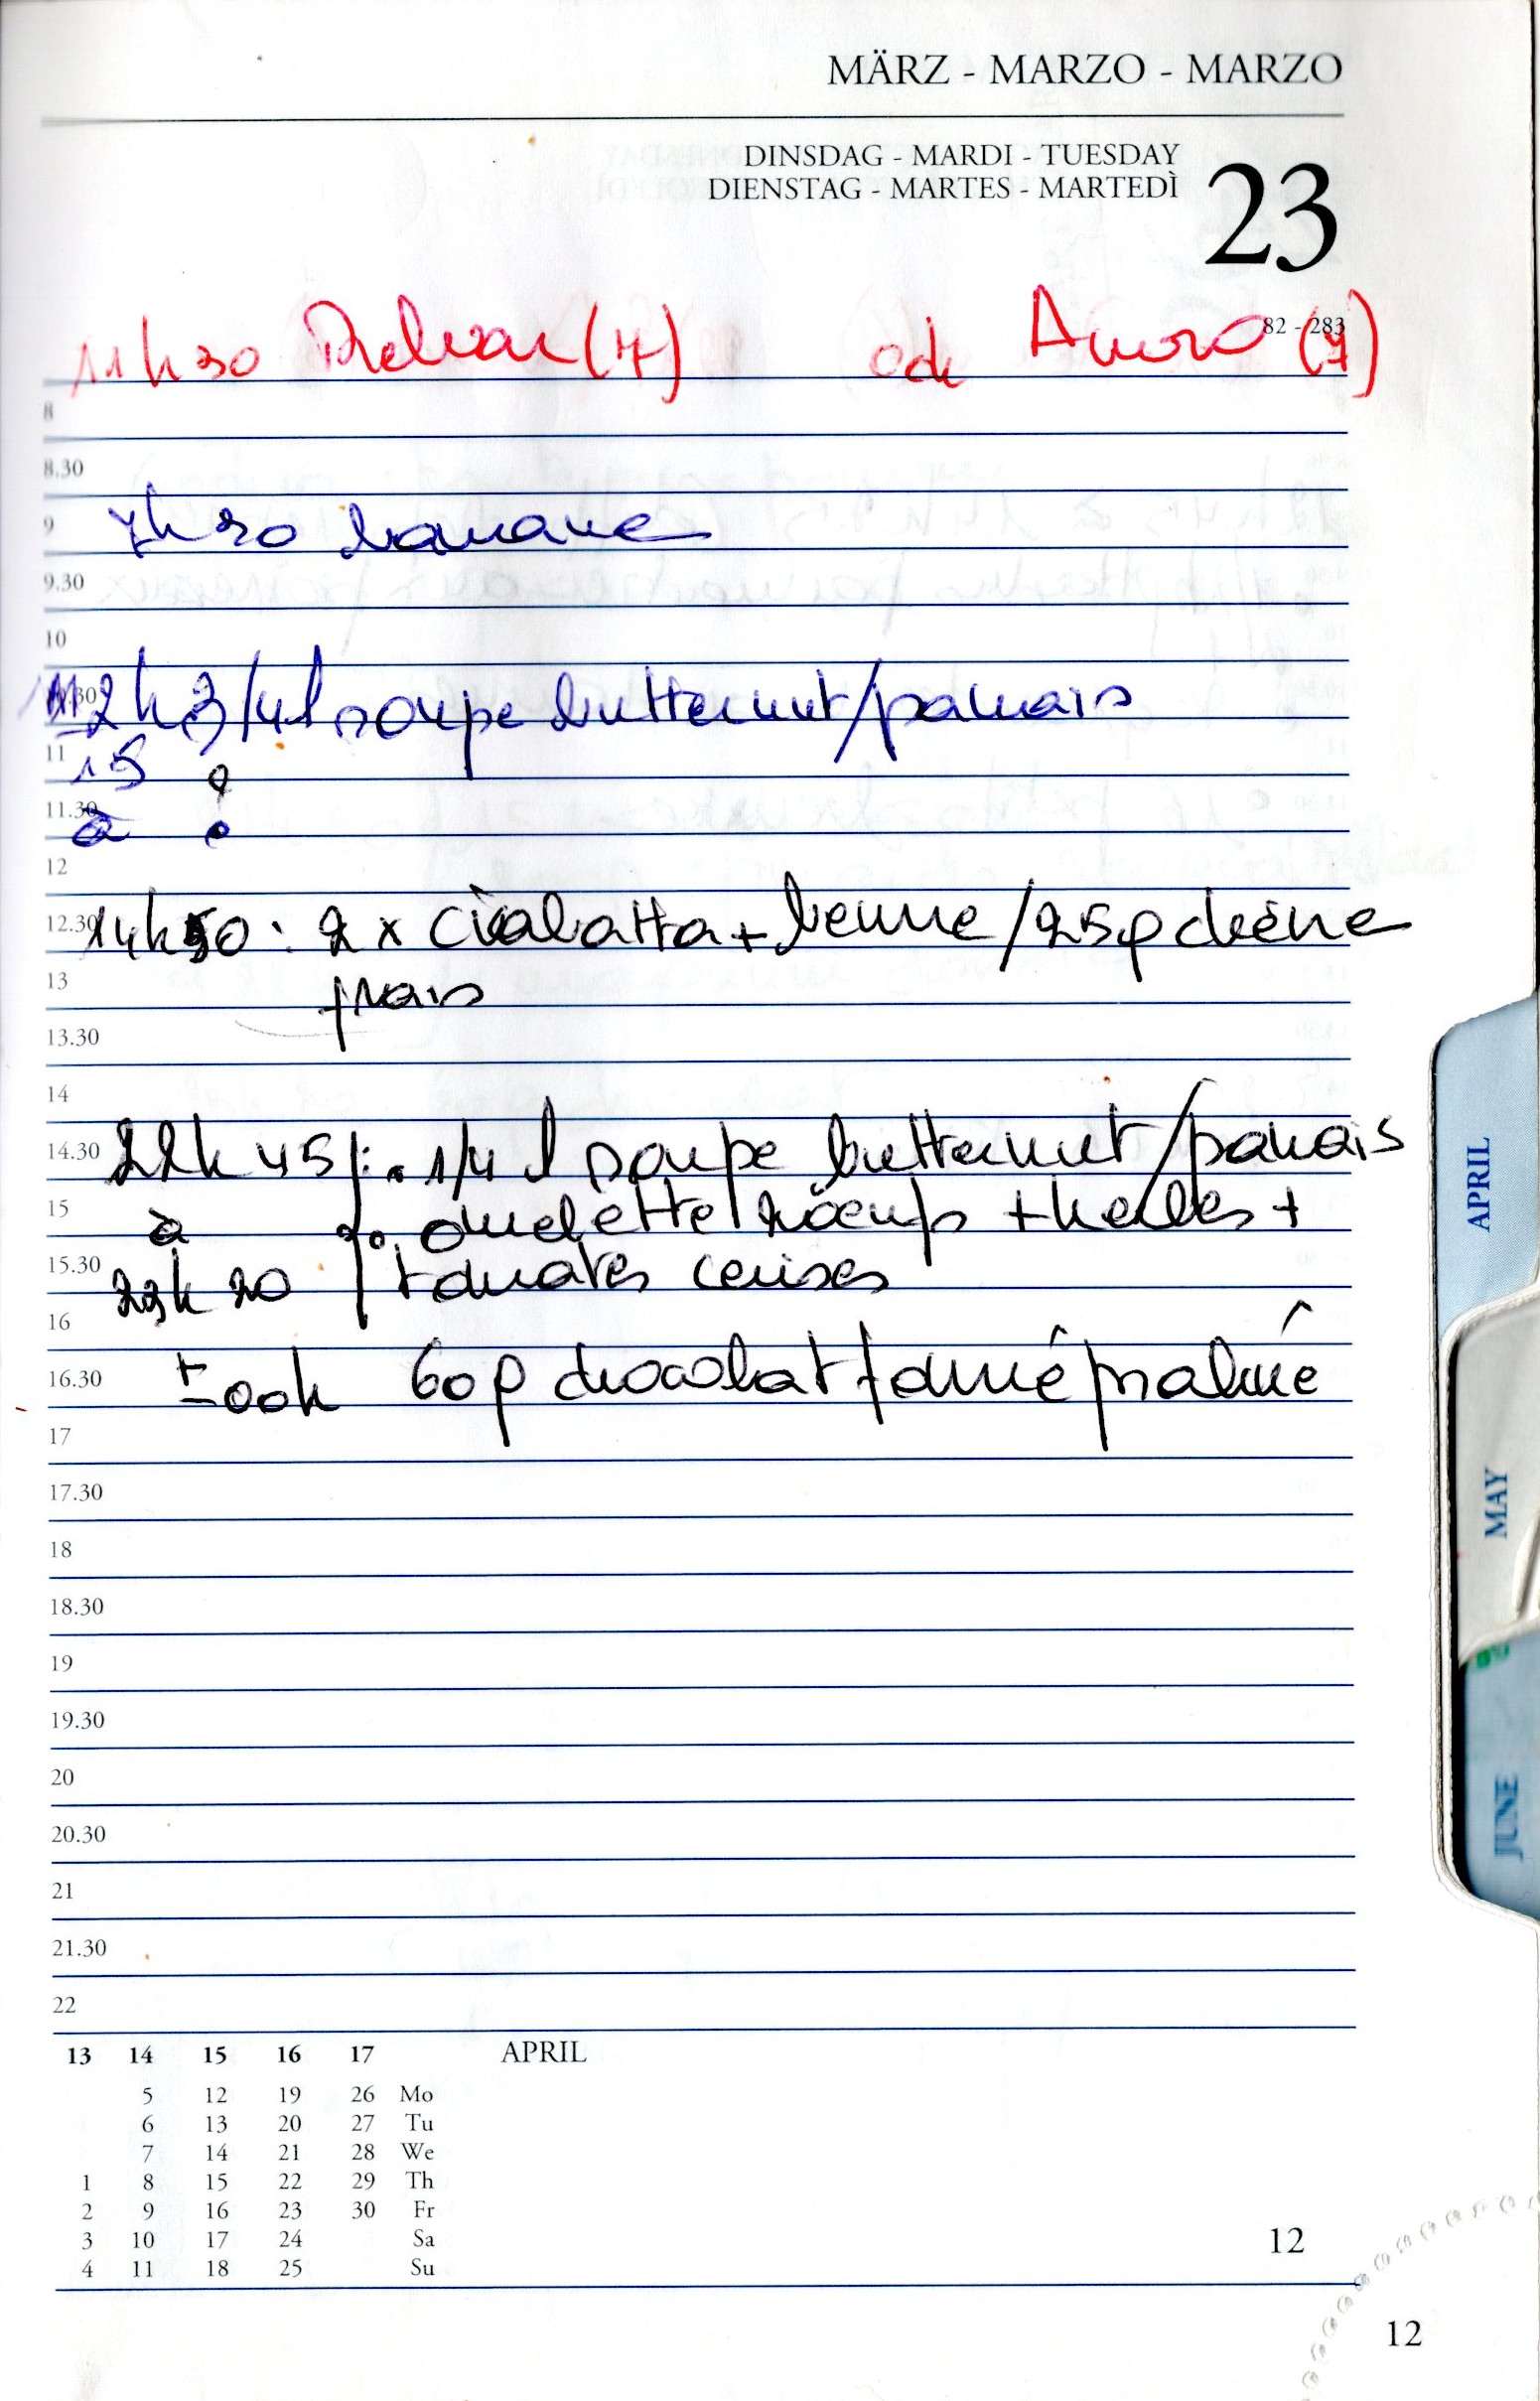 MÄRZ - MARZO - MARZO
DINSDAG - MARDI - TUESDAY
DIENSTAG - MARTES - MARTEDÌ
23
82 - 283
11h30 (7) (7)
8
8.30
9 7h30 banane
9.30
10
12h 3/4 l soupe butternut/panais
11 15
11.30 à
12
12.30 14h50 : 2 x ciabatta + beurre / 25g chèvre
13 frais
13.30
14
14.30 22h45 : 1/4 l soupe butternut/panais
15 à omelette 2 oeufs + herbes +
15.30 23h20 tomates cerises
16
16.30 ± 00h 60g chocolat praliné
17
17.30
18
18.30
19
19.30
20
20.30
21
21.30
22
13 14 15 16 17 APRIL
5 12 19 26 Mo
6 13 20 27 Tu
7 14 21 28 We
1 8 15 22 29 Th
2 9 16 23 30 Fr
3 10 17 24 Sa
4 11 18 25 Su
12
12
APRIL
MAY
JUNE